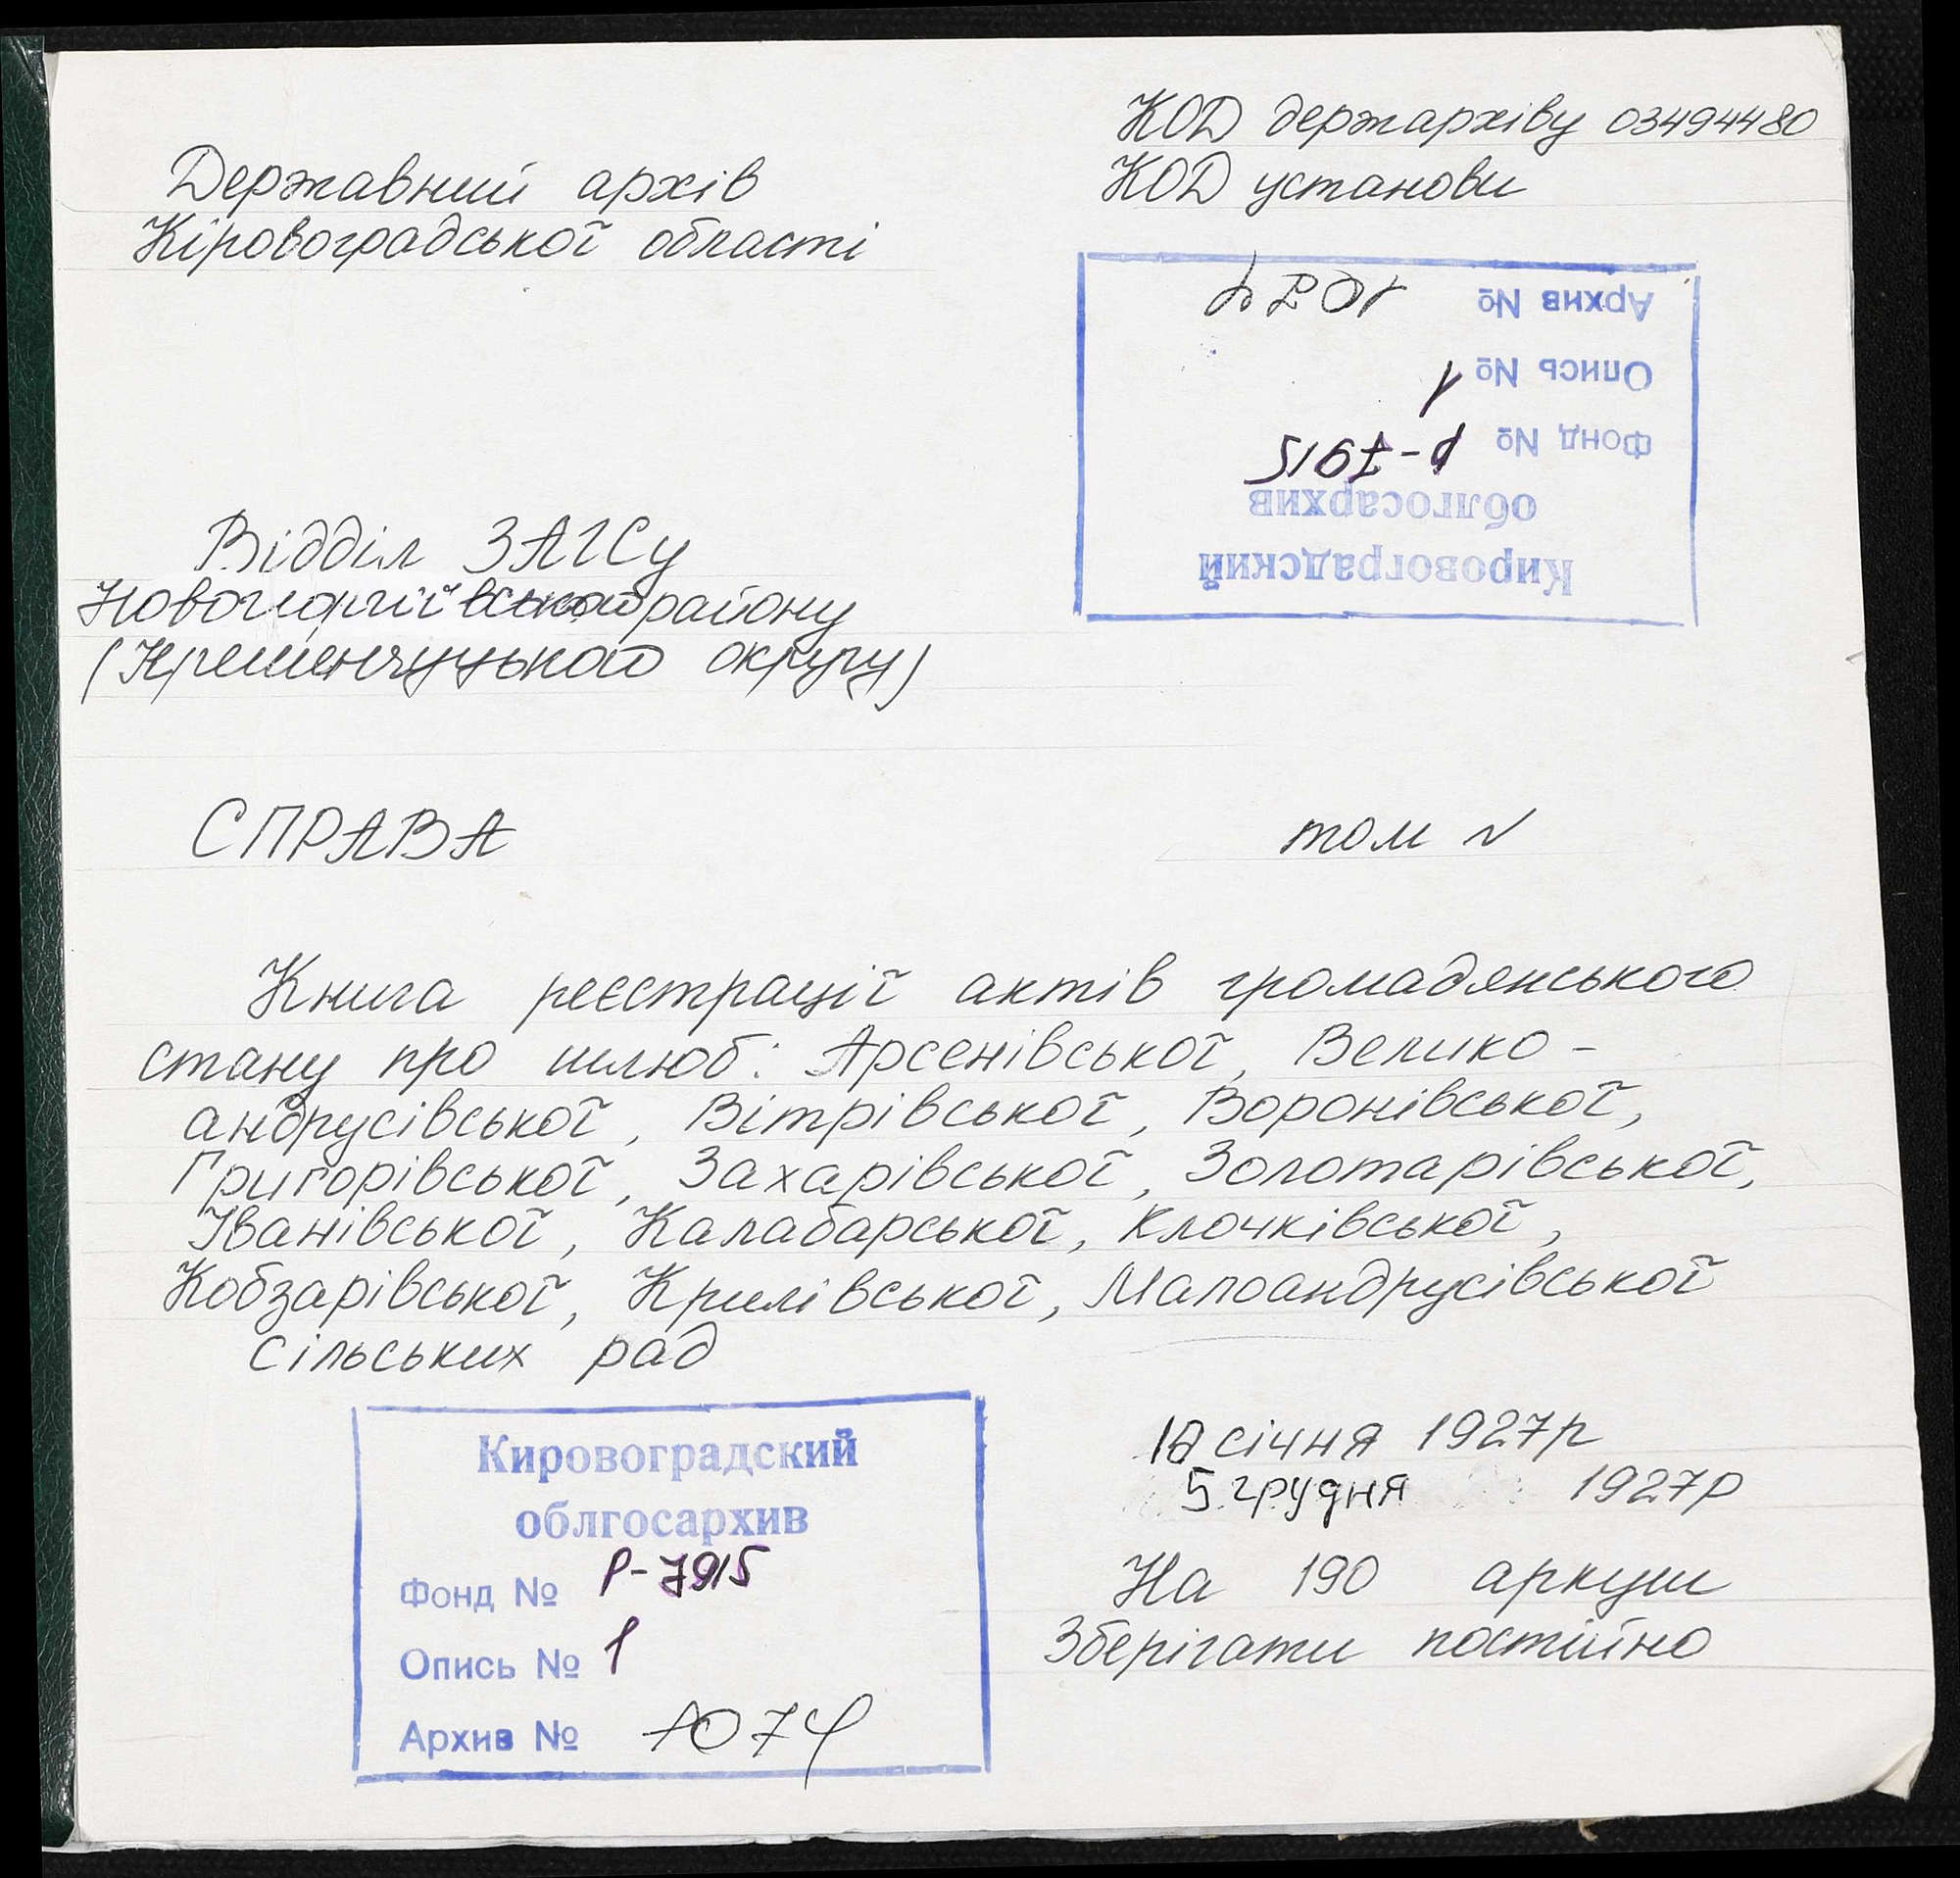 КОД держархіву 03494480
Державний архів
КОД установи
Кіровоградської області
Кировоградский
облгосархив
Фонд № Р-7915
Опись № 1
Архив № 1074
Відділ ЗАГСу
Новогеоргіївського району
(Кременчуцького округу)
СПРАВА том №
Книга реєстрації актів громадянського
стану про шлюб: Арсенівської, Велико-
андрусівської, Вітрівської, Воронівської,
Григорівської, Захарівської, Золотарівської,
Іванівської, Калабарської, Клочківської,
Кобзарівської, Крилівської, Малоандрусівської
сільських рад
січня 1927р
5 грудня 1927р
На 190 аркуш
Зберігати постійно
Кировоградский
облгосархив
Фонд № Р-7915
Опись № 1
Архив № 1074